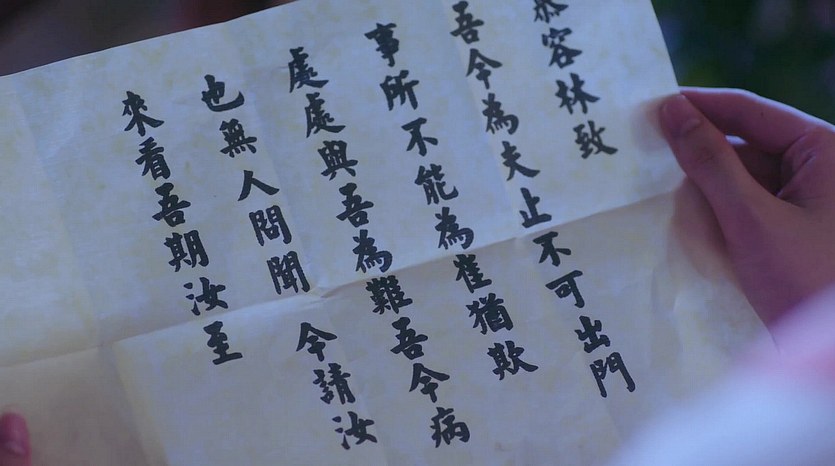 恭容林致
吾今為夫止不可出門
事所不能為崔猶欺
處處與吾為難吾今病
也無人問聞 今請汝
來看吾期汝至